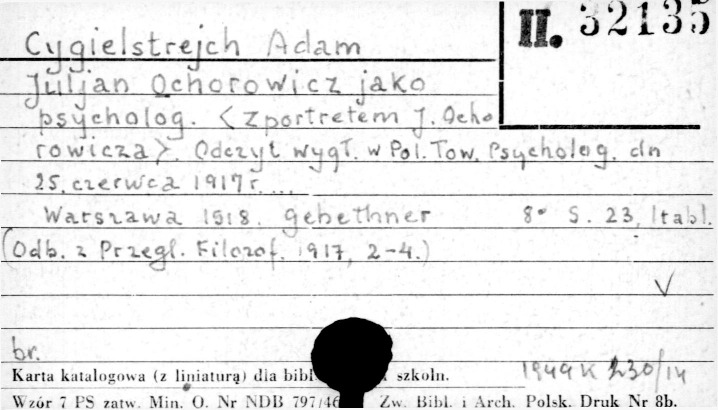 II. 32135
Cygielstrejch Adam
Juljan Ochorowicz jako
psycholog. <Z portretem J. Ocho
rowicza>. Odczyt wygł. w Pol. Tow. Psycholog. dn
25, czerwca 1917 r. ...
Warszawa 1918. Gebethner 8° S. 23, 1 tabl.
(Odb. z Przegl. Filozof. 1917, 2-4.)
V
br.
Karta katalogowa (z liniaturą) dla bibl szkoln.
1949 K 230/14
Wzór 7 PS zatw. Min. O. Nr NDB 797/46 Zw. Bibl. i Arch. Polsk. Druk Nr 8b.